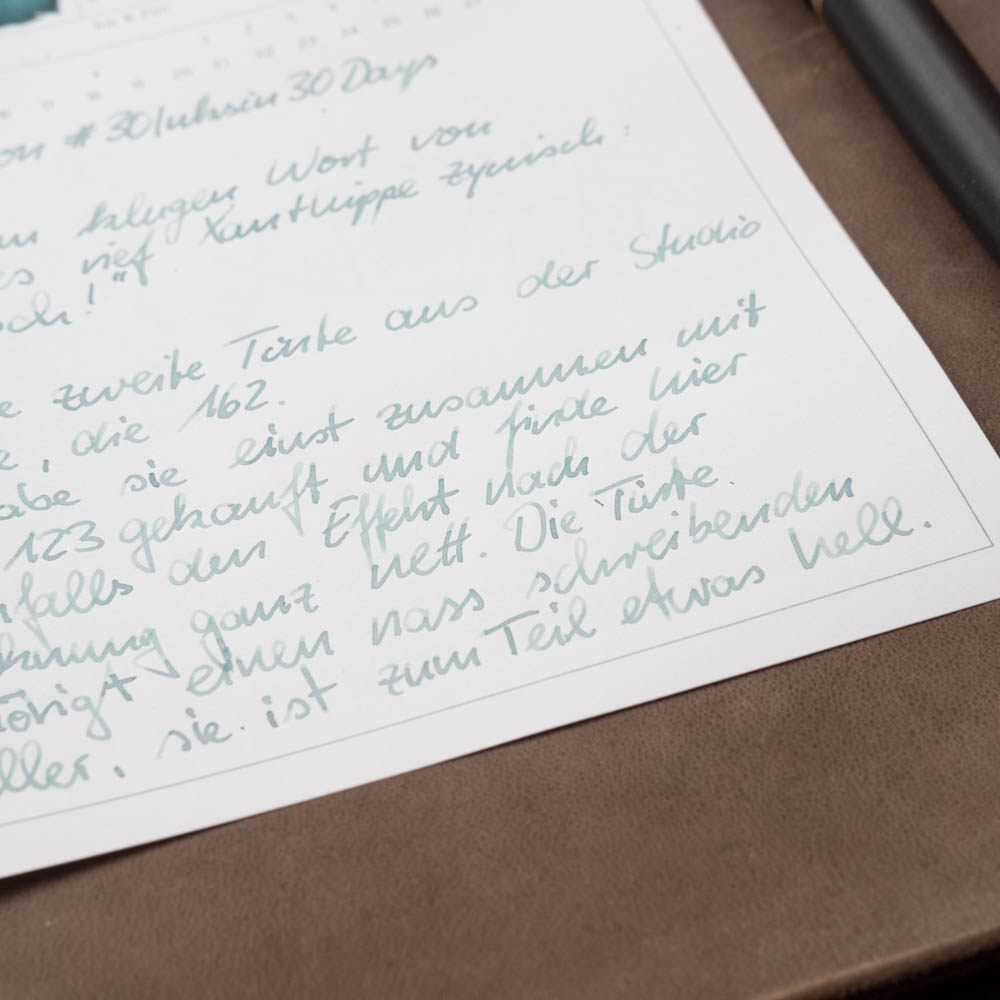 Ink & Pen
on #30Inksin30Days
klugen Wort von
es rief Xanthippe zynisch:
och!"
e zweite Tinte aus der Studio
e, die 162.
abe sie einst zusammen mit
123 gekauft und finde hier
nfalls den Effekt nach der
knung ganz nett. Die Tinte
ötigt einen nass schreibenden
ller, sie ist zum Teil etwas hell.